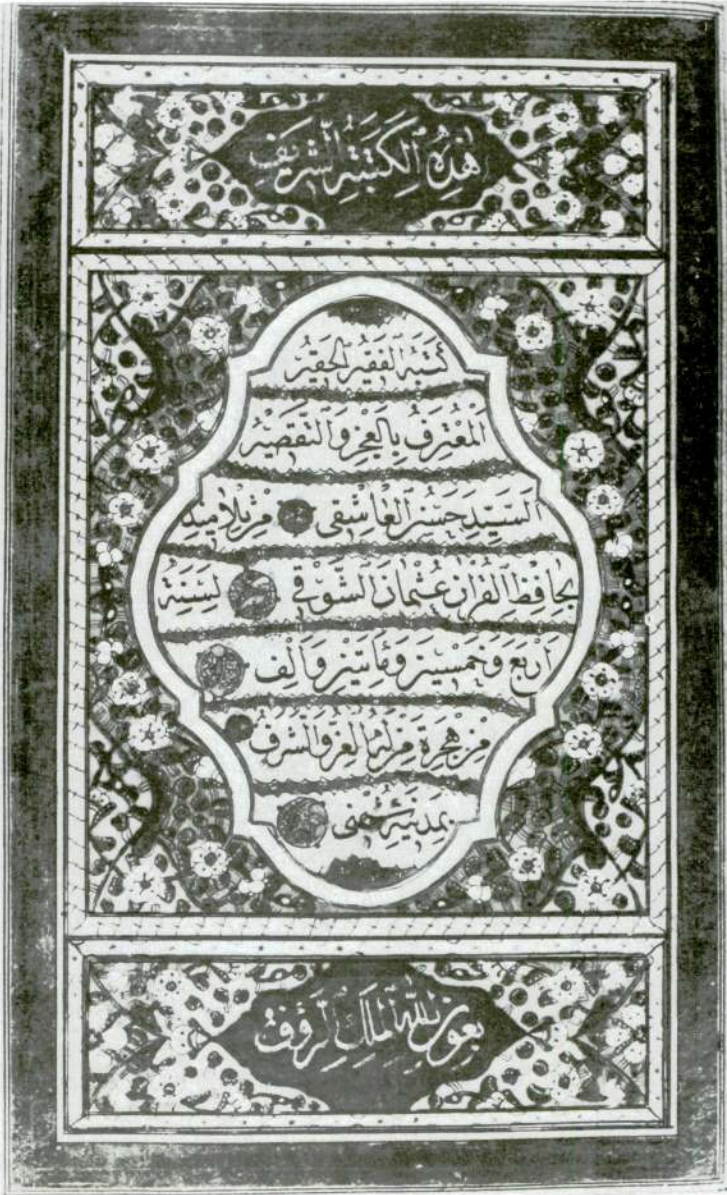 هٰذِهِ الْكَتَبَةِ الشَّرِيفِ
كَتَبَهُ الْفَقِيرُ الْحَقِيرُ
اَلْمُعْتَرِفُ بِالْعَجْزِ وَالتَّقْصِيرِ
اَلسَّيِّدْ حَسَنْ الْعَاشِقِى مِنْ تَلَامِيذِ
بِحَافِظِ الْقُرْاٰنِ عُثْمَانَ الشَّوْقِى لِسَنَةِ
اَرْبَعَ وَخَمْسِينَ وَمِاَتَيْنِ وَاَلْفٍ
مِنْ هِجْرَةِ مَنْ لَهُ الْعِزُّ وَالشَّرَفُ
بِمَدِينَةِ شُمْنِى
بِعَوْنِ اللّٰهِ الْمَلِكِ الرَّؤُفِ